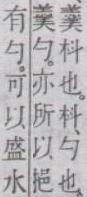 羹枓也。枓、勺也、
羹勺。亦所以挹
有勺。可以盛水